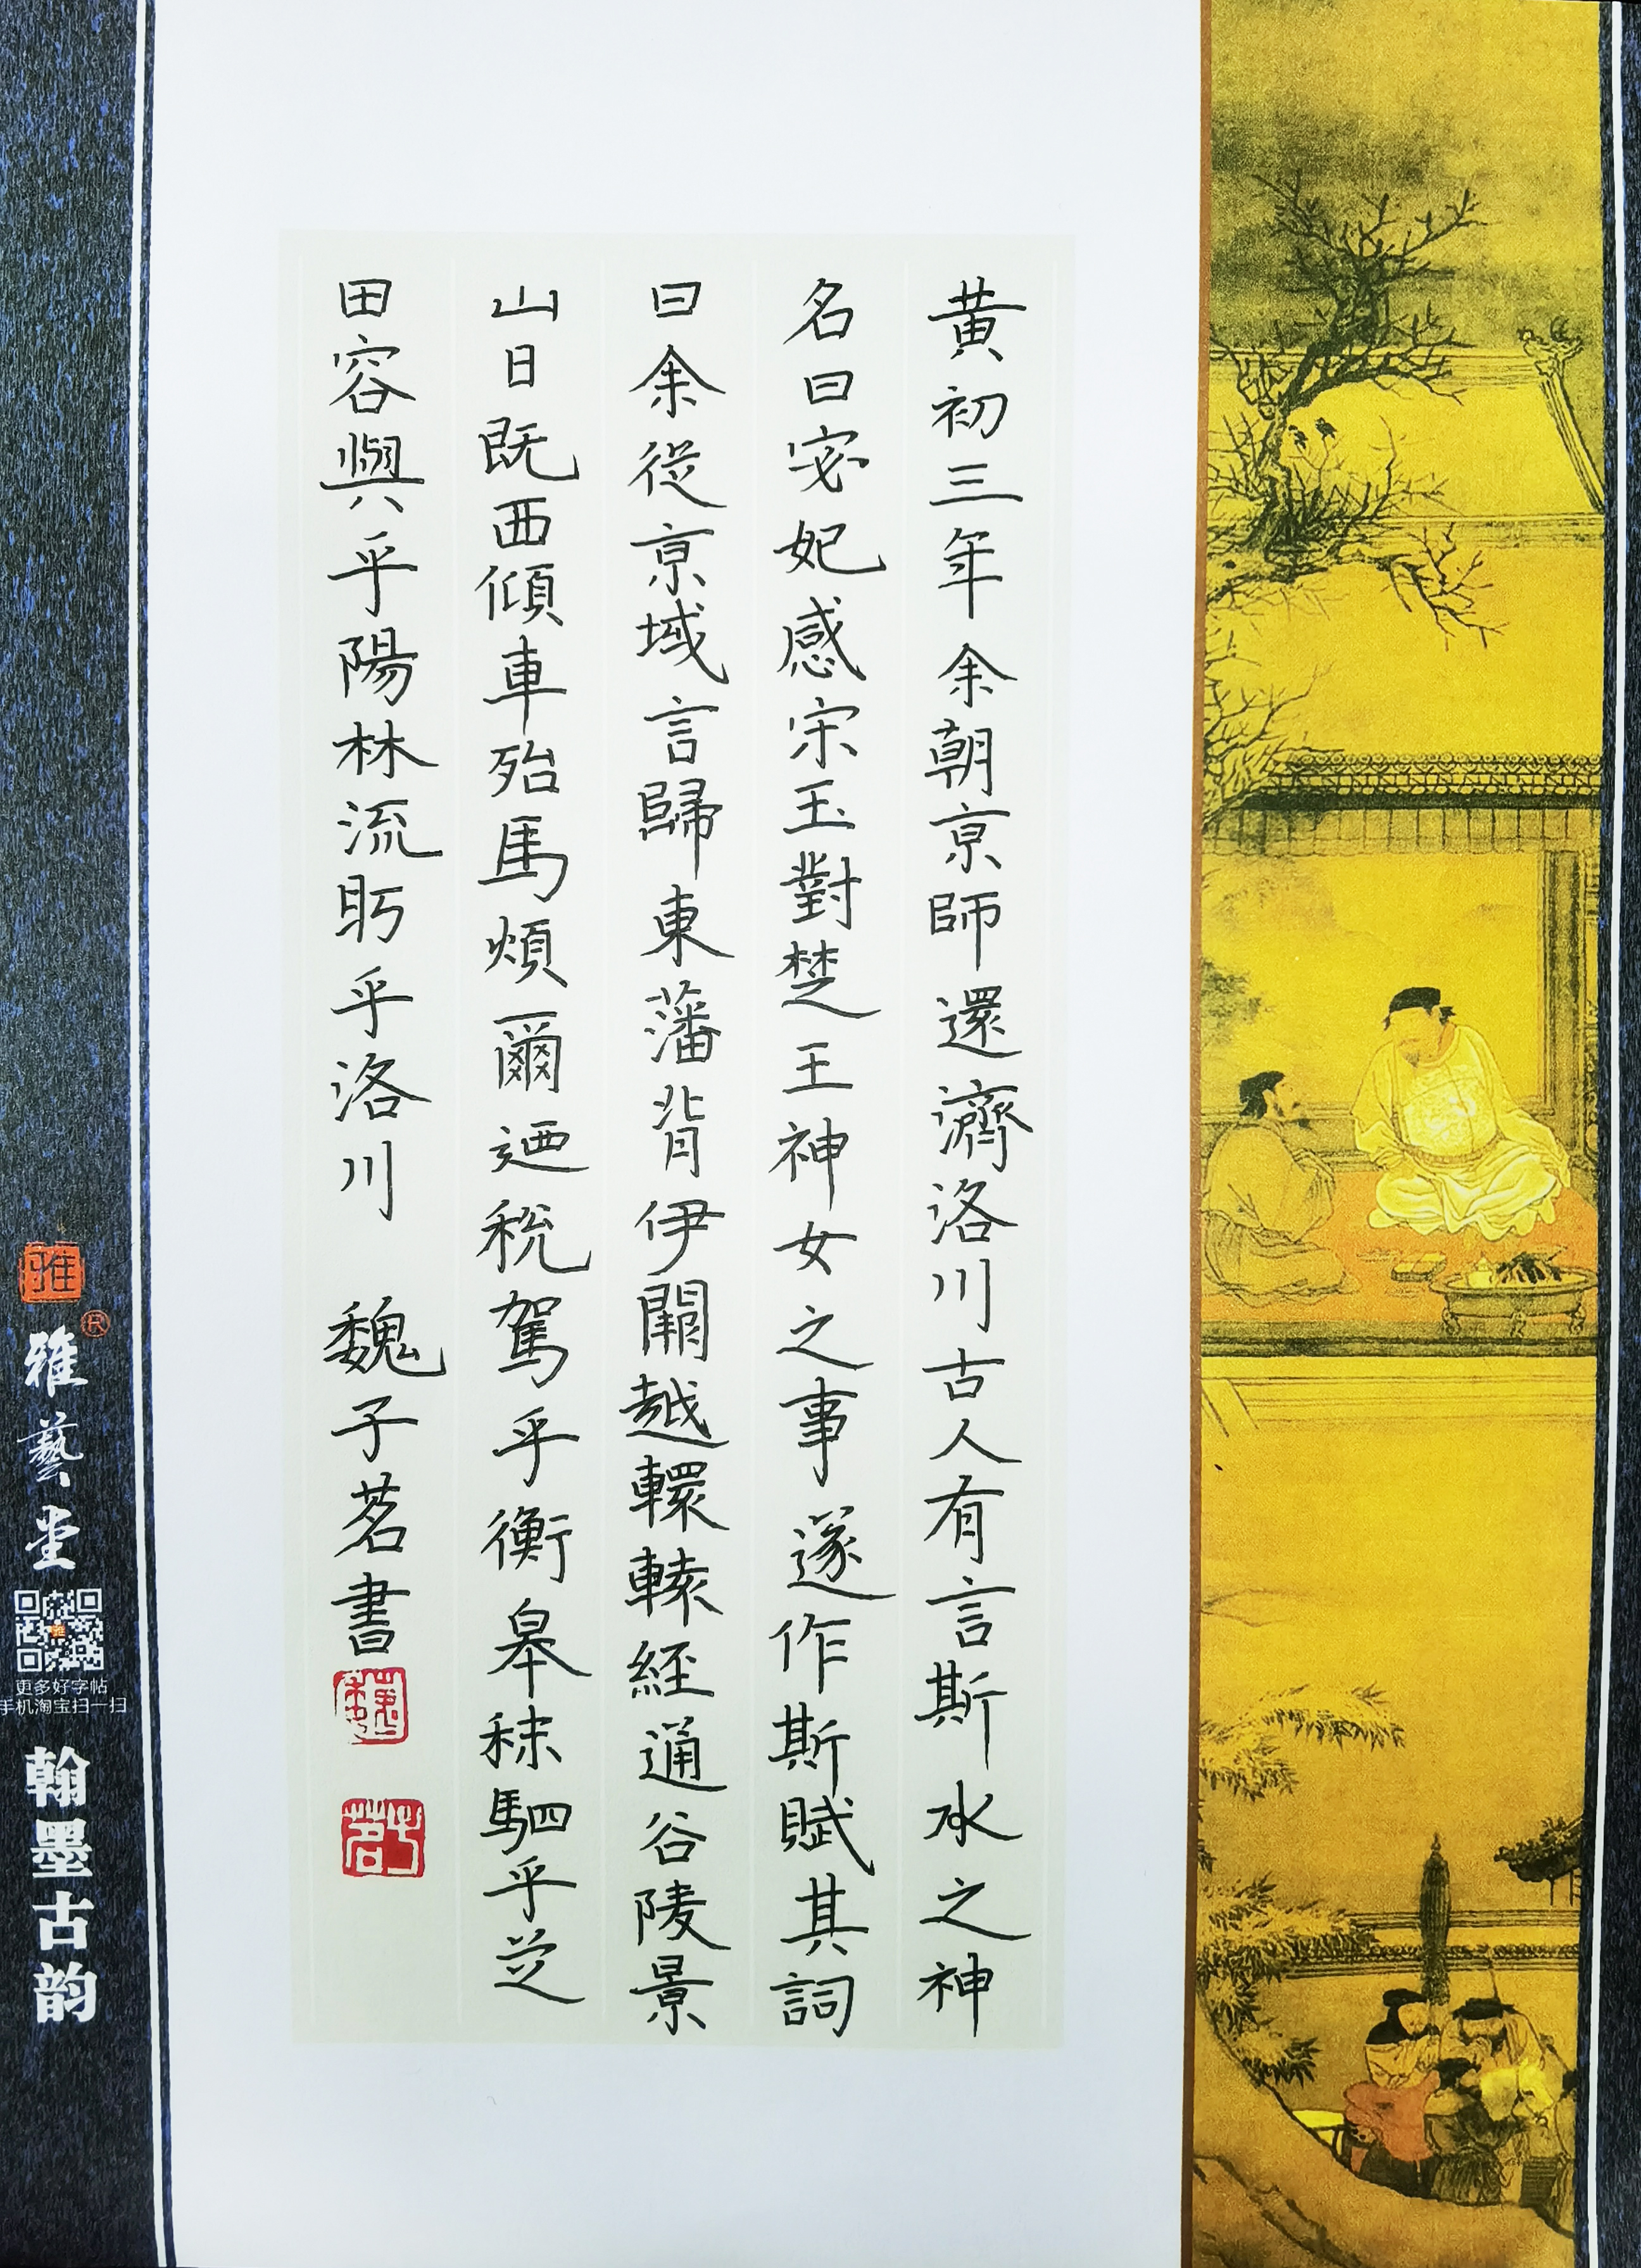 黄初三年余朝京師還濟洛川古人有言斯水之神
名曰宓妃感宋玉對楚王神女之事遂作斯賦其詞
曰余從京域言歸東藩背伊闕越轘轅經通谷陵景
山日既西傾車殆馬煩爾迺稅駕乎衡皋秣駟乎芝
田容與乎陽林流眄乎洛川 魏子茗書
雅
雅藝堂
更多好字帖
手机淘宝扫一扫
翰墨古韵